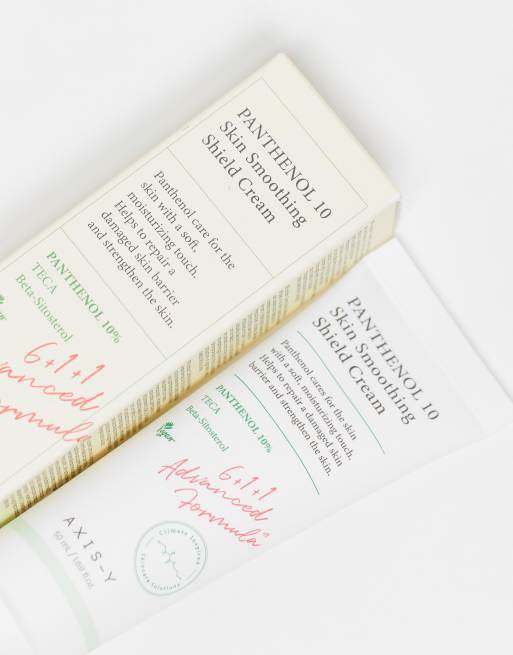 PANTHENOL 10
Skin Smoothing
Shield Cream
Panthenol care for the
skin with a soft,
moisturizing touch.
Helps to repair a
damaged skin barrier
and strengthen the skin.
PANTHENOL 10%
TECA
Beta-Sitosterol
6+1+1
Formula
PANTHENOL 10
Skin Smoothing
Shield Cream
Panthenol cares for the skin
with a soft, moisturizing touch.
Helps to repair a damaged skin
barrier and strengthen the skin.
PANTHENOL 10%
TECA
Beta-Sitosterol
Vegan
6+1+1
Advanced
Formula
Climate Inspired
Skincare Solutions
AXIS-Y
50 mL / 1.69 fl.oz.